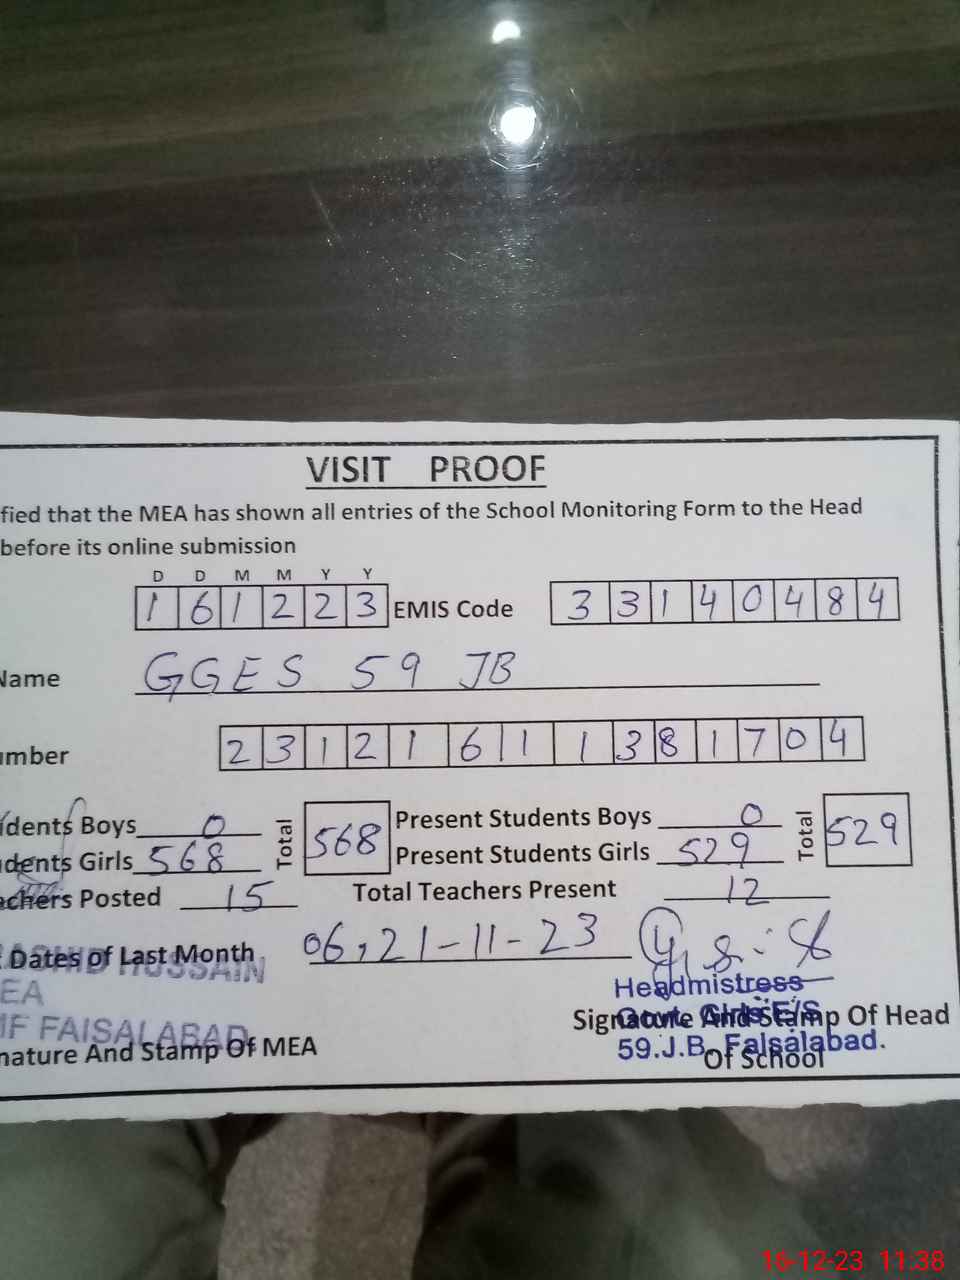 VISIT PROOF
fied that the MEA has shown all entries of the School Monitoring Form to the Head
before its online submission
D D M M Y Y
1 6 1 2 2 3 EMIS Code 3 3 1 4 0 4 8 4
Name GGES 59 JB
umber 2 3 1 2 1 6 1 1 3 8 1 7 0 4
dents Boys 0 Total 568 Present Students Boys 0 Total 529
dents Girls 568 Present Students Girls 529
chers Posted 15 Total Teachers Present 12
Dates of Last Month 06,21-11-23
RASHID HUSSAIN
EA
MF FAISALABAD
nature And Stamp Of MEA
Headmistress
Govt. Girls E/S
59.J.B. Faisalabad.
Signature And Stamp Of Head
Of School
16-12-23 11:38